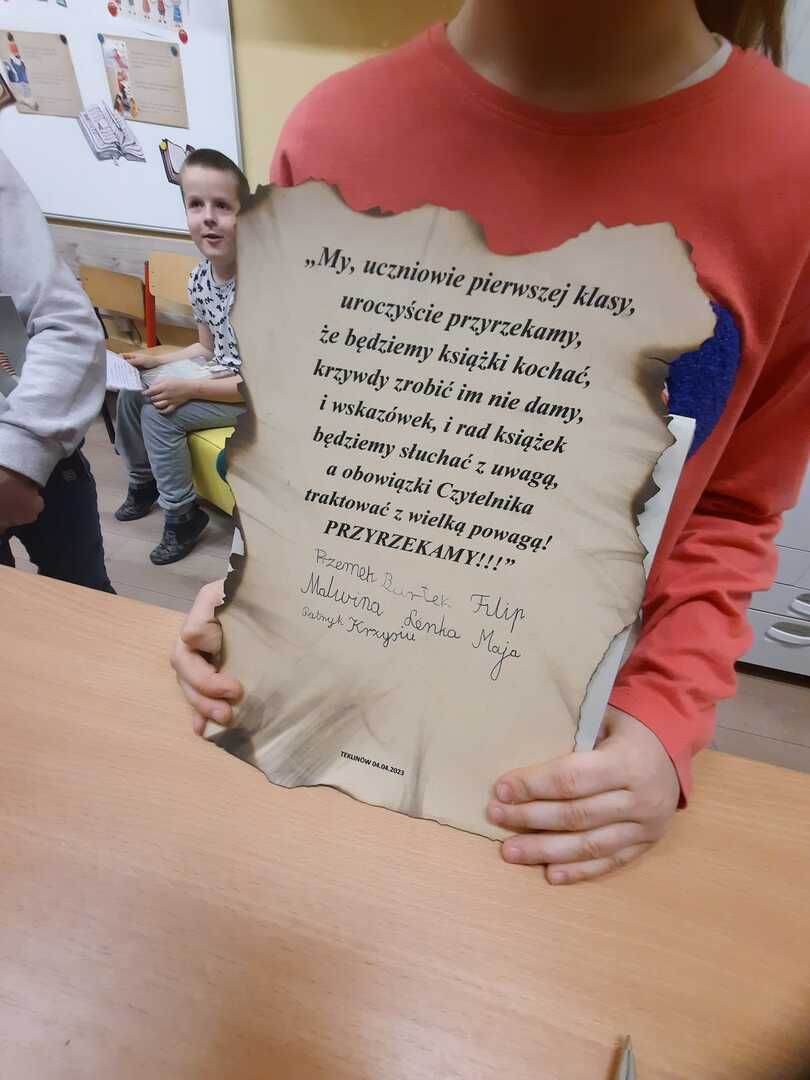 „My, uczniowie pierwszej klasy,
uroczyście przyrzekamy,
że będziemy książki kochać,
krzywdy zrobić im nie damy,
i wskazówek, i rad książek
będziemy słuchać z uwagą,
a obowiązki Czytelnika
traktować z wielką powagą!
PRZYRZEKAMY!!!”
Przemek Bartek Filip
Malwina Lenka Maja
Patryk Krzysiu
TEKLINÓW 04.04.2023